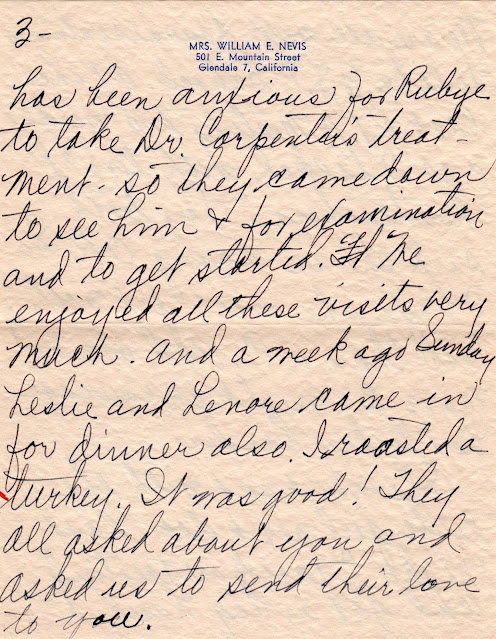 3-
MRS. WILLIAM E. NEVIS
501 E. Mountain Street
Glendale 7, California
has been anxious for Rubye
to take Dr. Carpenter's treat-
ment - so they came down
to see him & for examination
and to get started. We
enjoyed all these visits very
much. And a week ago Sunday
Leslie and Lenore came in
for dinner also. I roasted a
turkey. It was good! They
all asked about you and
asked us to send their love
to you.